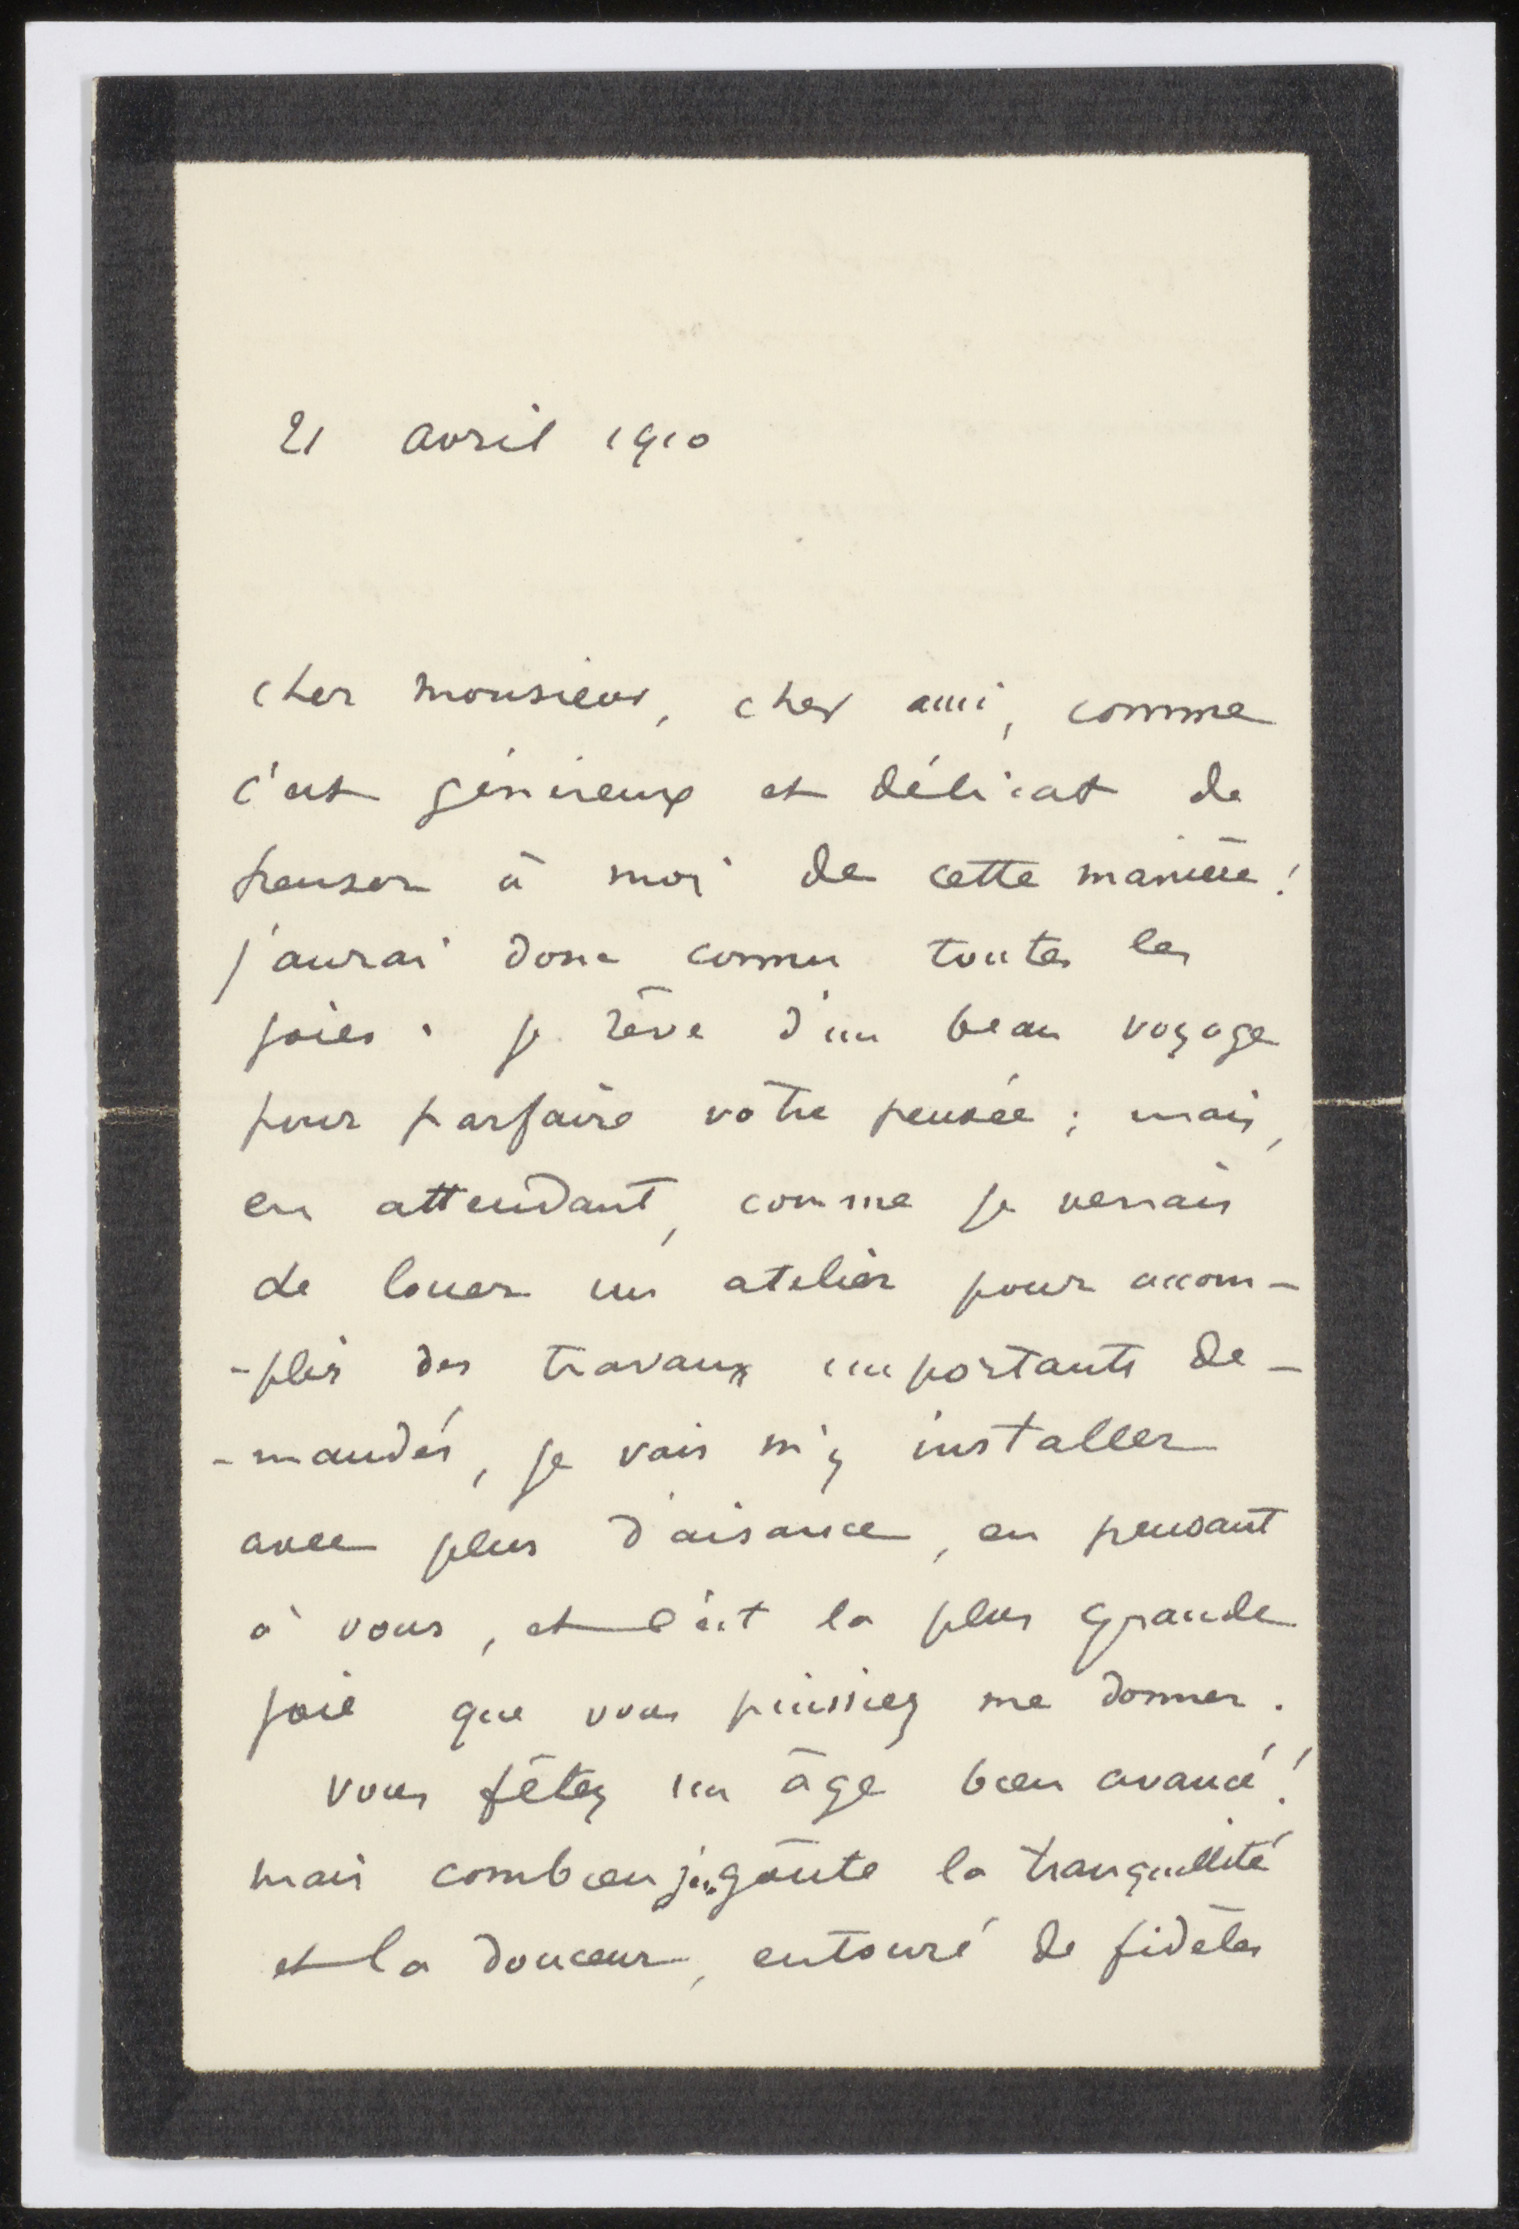 21 avril 1910
cher monsieur, cher ami, comme
c'est généreux et délicat de
penser à moi de cette manière!
j'aurai donc connu toutes les
joies. je rêve d'un beau voyage
pour parfaire votre pensée; mais,
en attendant, comme je venais
de louer un atelier pour accom-
-plir des travaux importants de-
-mandés, je vais m'y installer
avec plus d'aisance, en pensant
à vous, et c'est la plus grande
joie que vous puissiez me donner.
vous fêtez un âge bien avancé!
mais combien j'en goûte la tranquillité
et la douceur, entouré de fidèles